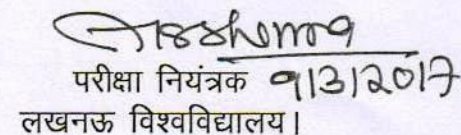 परीक्षा नियंत्रक 9/3/2017
लखनऊ विश्वविद्यालय।